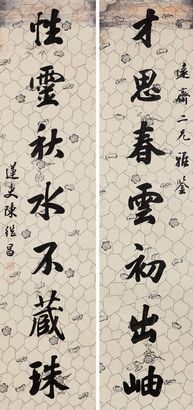 才思春雲初出岫
遠齋二兄雅鉴
性靈秋水不藏珠
蓮史陳繼昌